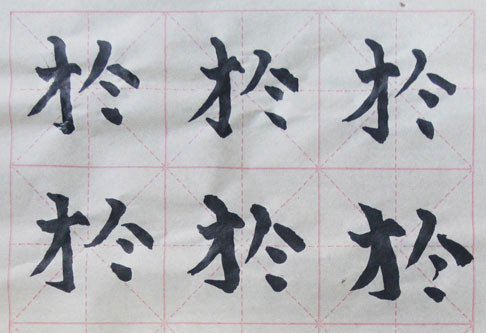 於於於
於於於